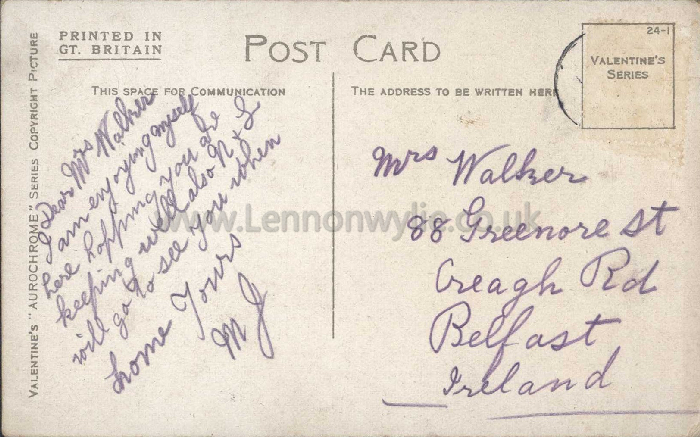 PRINTED IN
GT. BRITAIN
POST CARD
24-1
VALENTINE'S
SERIES
THIS SPACE FOR COMMUNICATION
THE ADDRESS TO BE WRITTEN HERE
VALENTINE'S "AUROCHROME" SERIES COPYRIGHT PICTURE
Dear Mrs Walker
I am enjoying myself
here hopping you are
keeping well also N & L
will go to see you when
home Yours
M J
Mrs Walker
88 Greenore St
Creagh Rd
Belfast
Ireland
www.Lennonwylie.co.uk